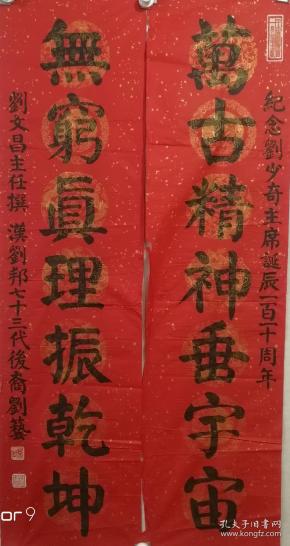 紀念劉少奇主席誕辰一百一十周年
萬古精神垂宇宙
無窮真理振乾坤
劉文昌主任撰 漢劉邦七十三代後裔劉藝
or 9
孔夫子旧书网